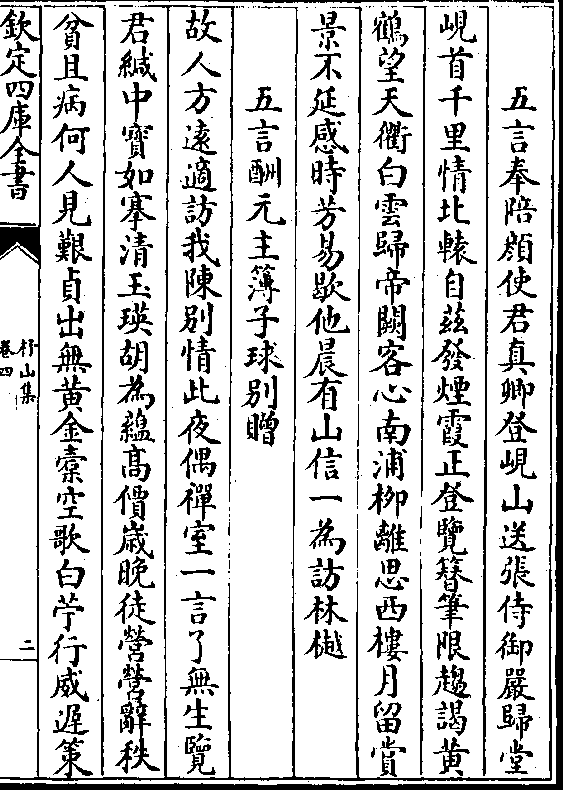 五言奉陪顔使君真卿登峴山送張侍御嚴歸堂
峴首千里情北轅自兹發煙霞正登覽簪筆限趨謁黄
鶴望天衢白雲歸帝闕客心南浦柳離思西樓月留賞
景不延感時芳易歇他晨有山信一為訪林樾
五言酬元主簿子球别贈
故人方遠適訪我陳别情此夜偶禪室一言了無生覽
君緘中寳如搴清玉瑛胡為藴髙價嵗晚徒營營辭秩
貧且病何人見艱貞出無黄金槖空歌白苧行威遅策
欽定四庫全書
杼山集
卷四
二